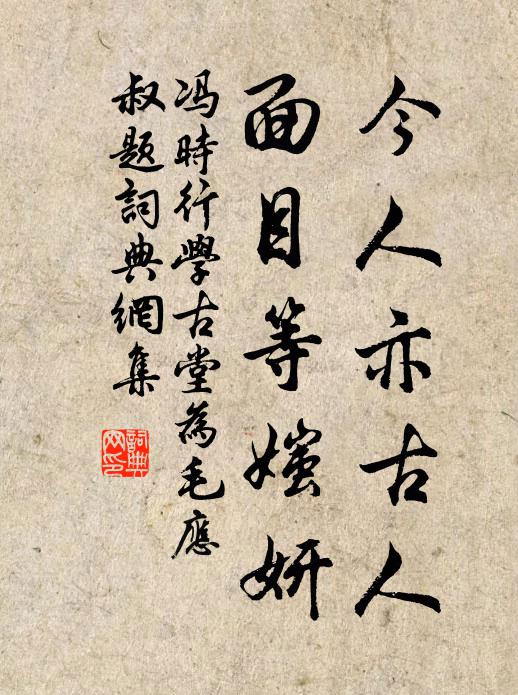 今人亦古人
面目等媸妍
冯時行學古堂為毛應
叔題詞典網集
詞典網印